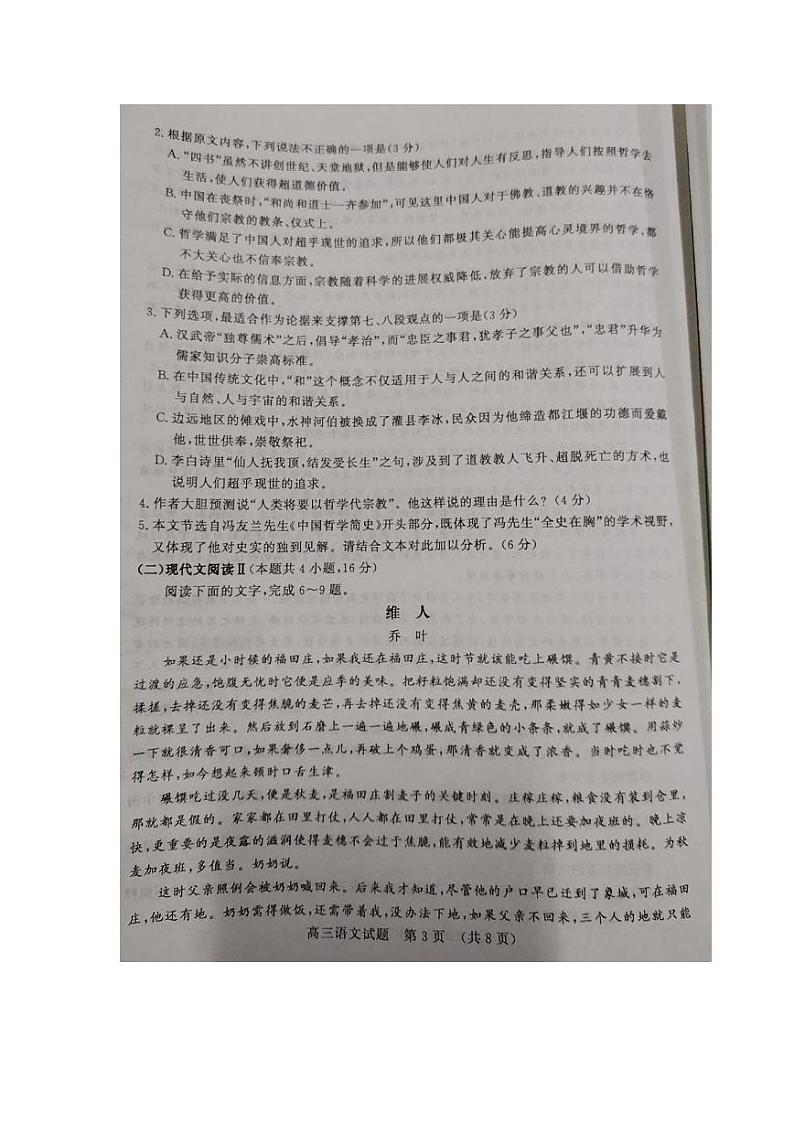 2. 根据原文内容,下列说法不正确的一项是(3分)
A. “四书”虽然不讲创世纪、天堂地狱,但是能够使人们对人生有反思,指导人们按照哲学去
生活,使人们获得超道德价值。
B. 中国在丧祭时,“和尚和道士一齐参加”,可见这里中国人对于佛教、道教的兴趣并不在恪
守他们宗教的教条、仪式上。
C. 哲学满足了中国人对超乎现世的追求,所以他们都极其关心能提高心灵境界的哲学,都
不大关心也不信奉宗教。
D. 在给予实际的信息方面,宗教随着科学的进展权威降低,放弃了宗教的人可以借助哲学
获得更高的价值。
3. 下列选项,最适合作为论据来支撑第七、八段观点的一项是(3分)
A. 汉武帝“独尊儒术”之后,倡导“孝治”,而“忠臣之事君,犹孝子之事父也”,“忠君”升华为
儒家知识分子崇高标准。
B. 在中国传统文化中,“和”这个概念不仅适用于人与人之间的和谐关系,还可以扩展到人
与自然、人与宇宙的和谐关系。
C. 边远地区的傩戏中,水神河伯被换成了灌县李冰,民众因为他缔造都江堰的功德而爱戴
他,世世供奉,崇敬祭祀。
D. 李白诗里“仙人抚我顶,结发受长生”之句,涉及到了道教教人飞升、超脱死亡的方术,也
说明人们超乎现世的追求。
4. 作者大胆预测说“人类将要以哲学代宗教”。他这样说的理由是什么?(4分)
5. 本文节选自冯友兰先生《中国哲学简史》开头部分,既体现了冯先生“全史在胸”的学术视野,
又体现了他对史实的独到见解。请结合文本对此加以分析。(6分)
(二)现代文阅读Ⅱ(本题共4小题,16分)
阅读下面的文字,完成6~9题。
维 人
乔 叶
如果还是小时候的福田庄,如果我还在福田庄,这时节就该能吃上碾馔。青黄不接时它是
过渡的应急,饱腹无忧时它便是应季的美味。把籽粒饱满却还没有变得坚实的青青麦穗割下,
揉搓,去掉还没有变得焦脆的麦芒,再去掉还没有变得焦黄的麦壳,那柔嫩得如少女一样的麦
粒就裸呈了出来。然后放到石磨上一遍一遍地碾,碾成青绿色的小条条,就成了碾馔。用蒜炒
一下就很清香可口,如果奢侈一点儿,再破上个鸡蛋,那清香就变成了浓香。当时吃时也不觉
得怎样,如今想起来顿时口舌生津。
碾馔吃过没几天,便是秋麦,是福田庄割麦子的关键时刻。庄稼庄稼,粮食没有装到仓里,
那就都是假的。家家都在田里打仗,人人都在田里打仗,常常是在晚上还要加夜班的。晚上凉
快,更重要的是夜露的滋润使得麦穗不会过于焦脆,能有效地减少麦粒掉到地里的损耗。为秋
麦加夜班,多值当。奶奶说。
这时父亲照例会被奶奶喊回来。后来我才知道,尽管他的户口早已迁到了象城,可在福田
庄,他还有地。奶奶需得做饭,还需带着我,没办法下地,如果父亲不回来,三个人的地就只能
高三语文试题 第3页 (共8页)